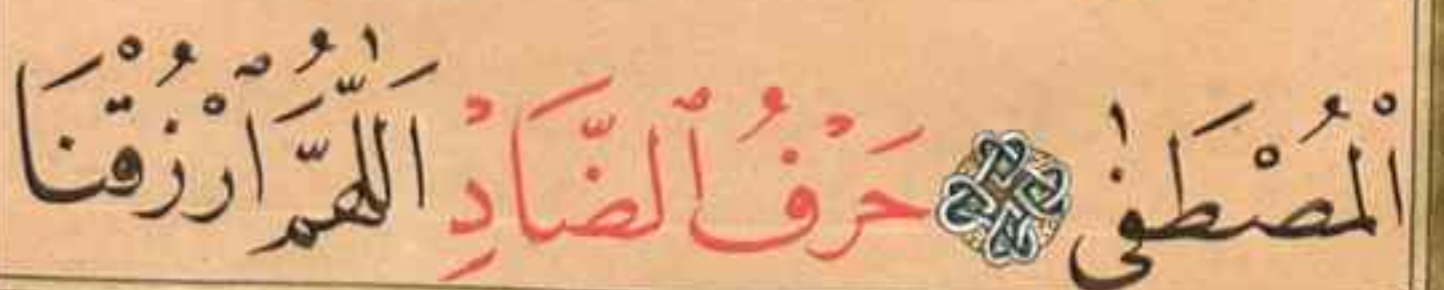 الْمُصْطَفٰى حَرْفُ ٱلضَّادِ اَللّٰهُمَّ ٱرْزُقْنَا